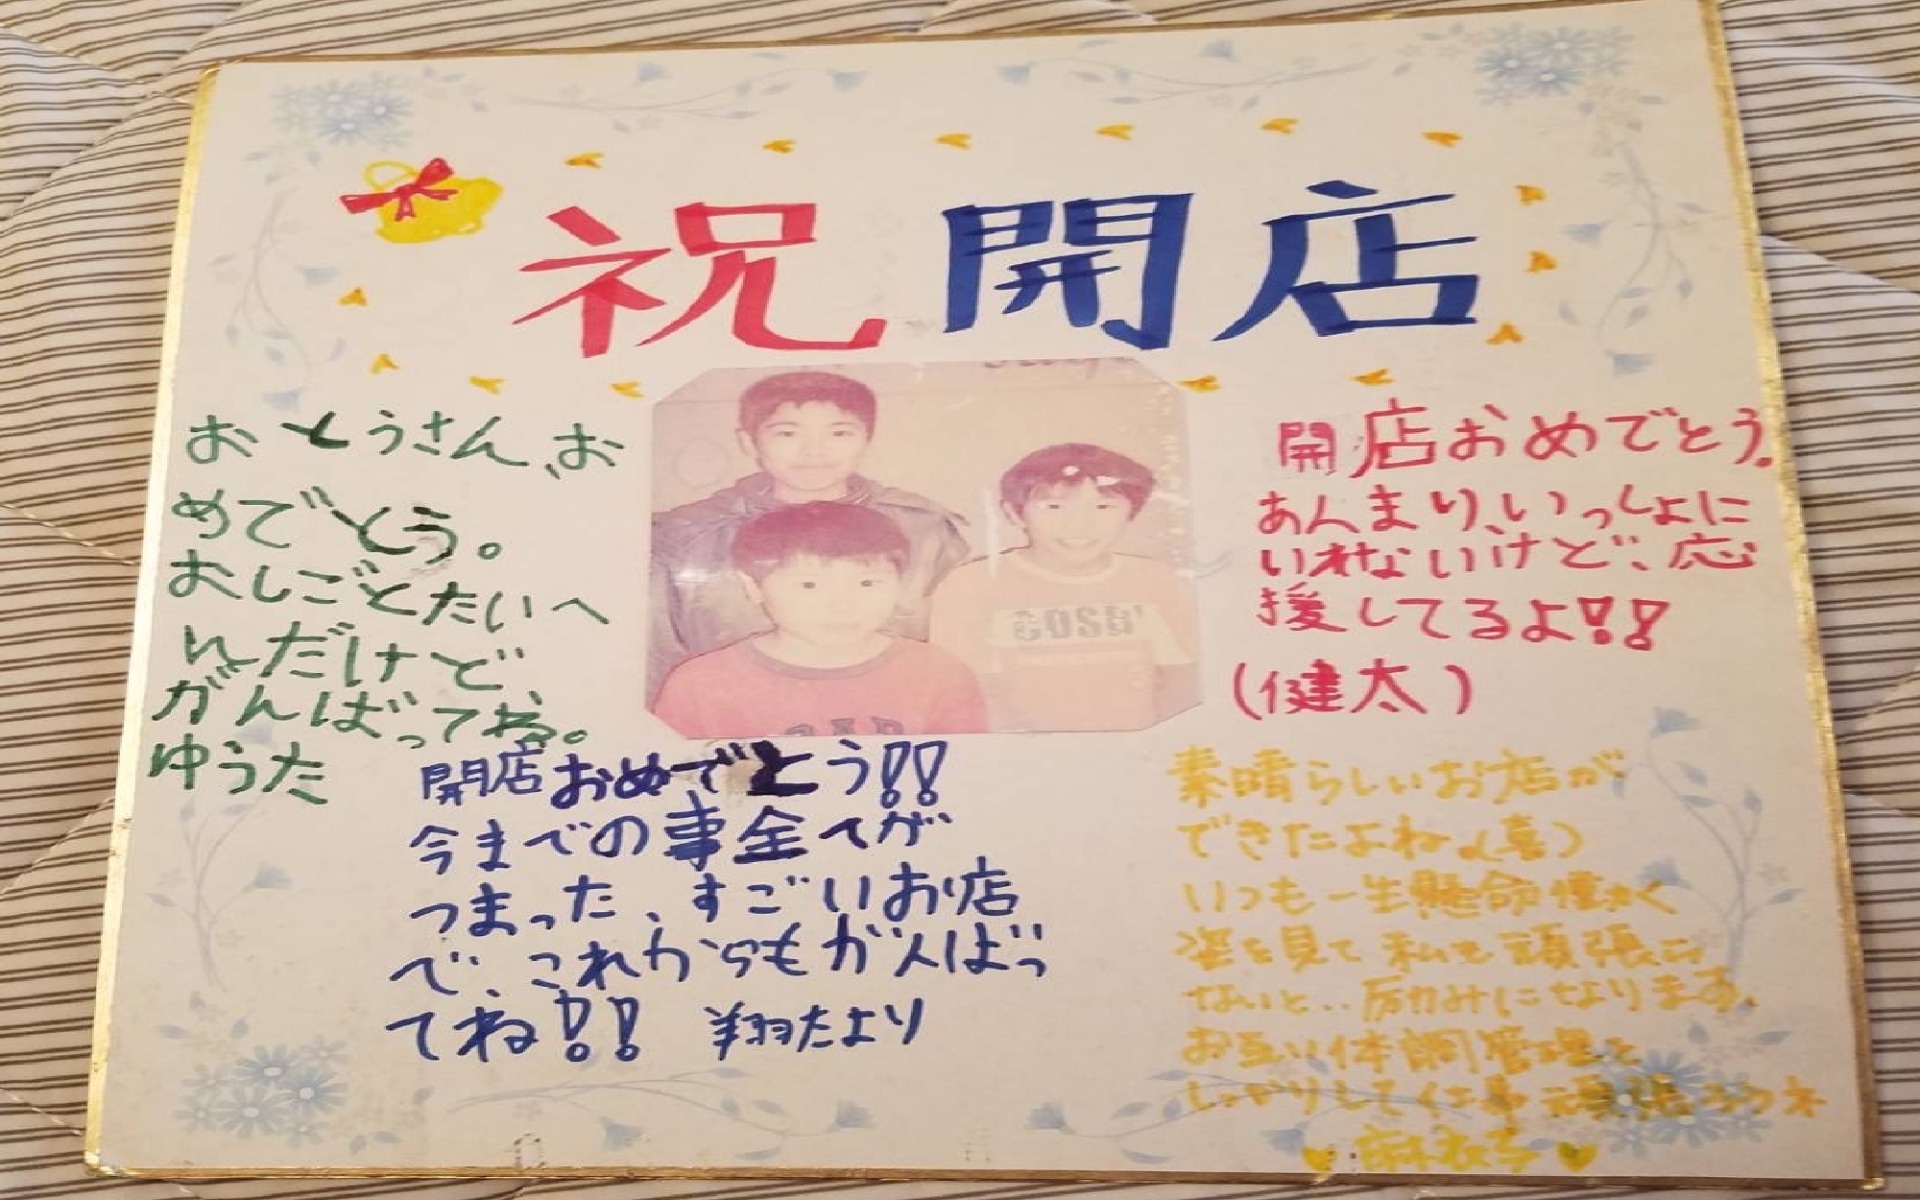 祝 開店
おとうさん、お
めでとう。
おしごとたいへ
んだけど
がんばってね。
ゆうた
GOSH
GAP
開店おめでとう。
あんまり、いっしょに
いれないけど、応
援してるよ!!
(健太)
開店おめでとう!!
今までの事全てが
つまった、すごいお店
で、これからもがんばっ
てね!! 翔太より
素晴らしいお店が
できたよね。(喜)
いつも一生懸命働く
姿を見て私も頑張ら
ないと‥励みになります。
お互い体調管理を
しっかりして仕事頑張ろうネ
麻衣子